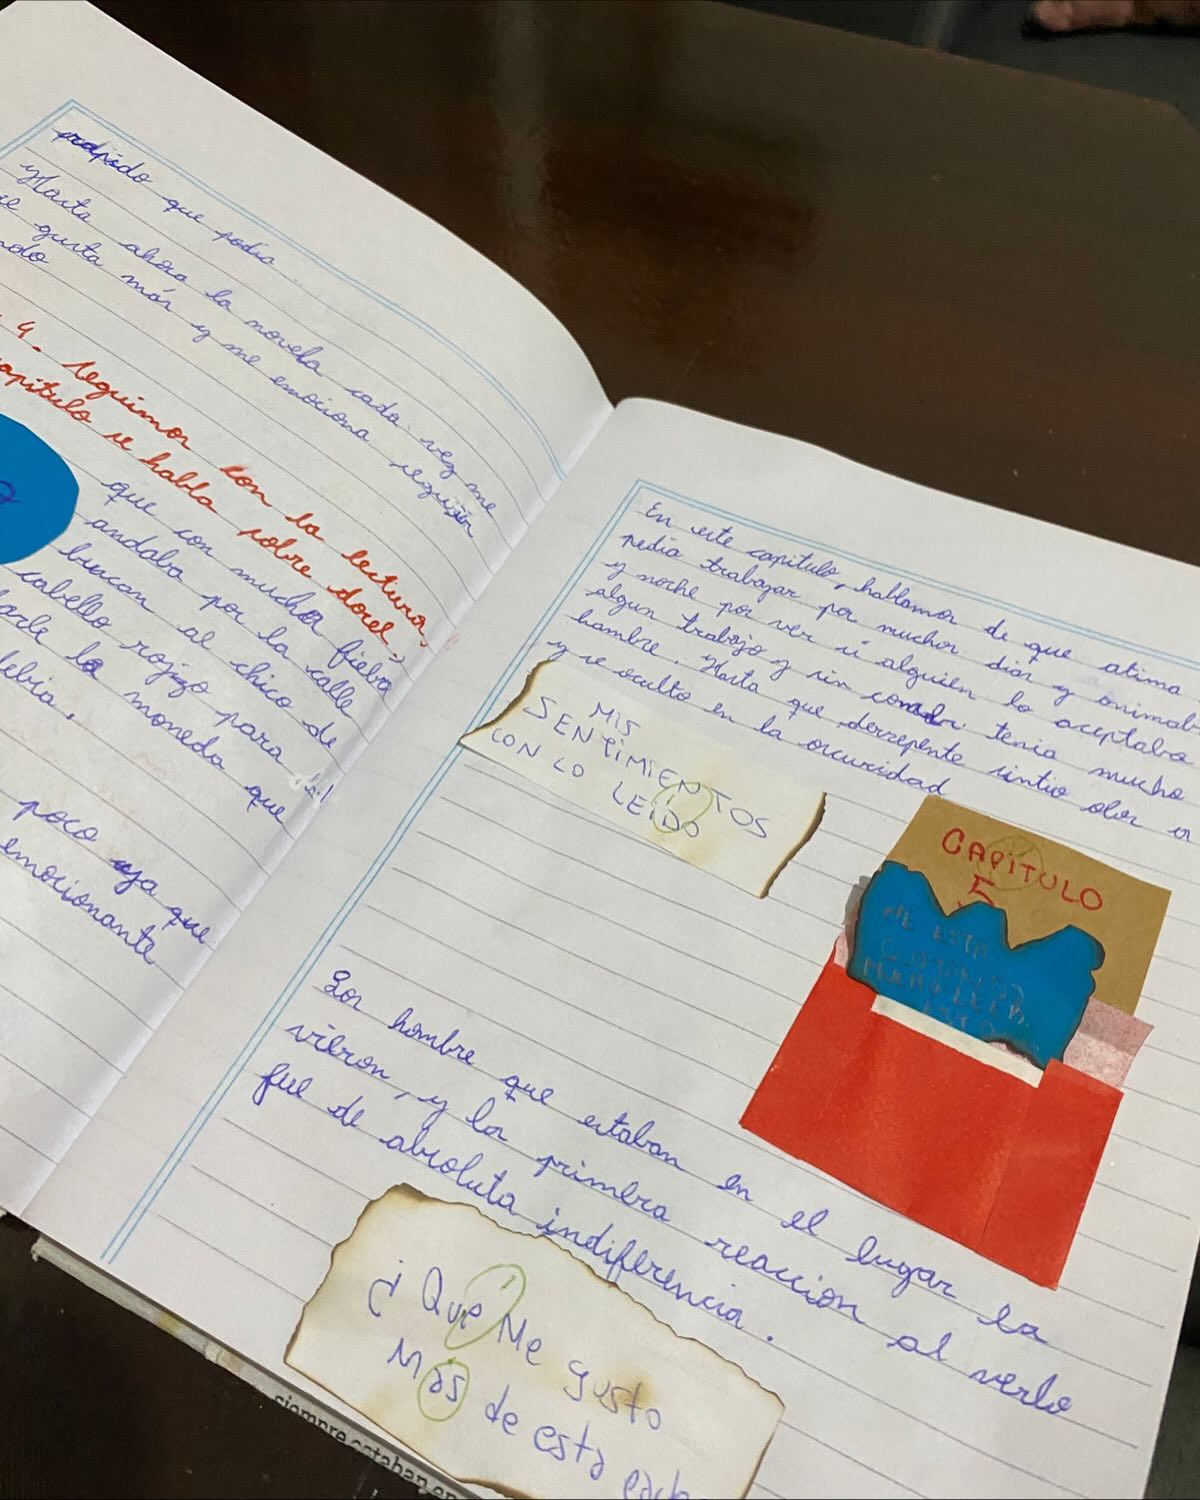 que podía
Hasta ahora la novela cada vez me
gusta más y me emociona seguir
4. Seguimos con la lectura,
capítulo se habla sobre dorel,
que con mucha fiebre
andaba por la calle
buscan al chico de
cabello rojizo para
la moneda que
debia.
poco ya que
emocionante
En este capitulo, hablamos de que atima
pedia trabajar por muchos dias y
y noche por ver si alguien lo aceptaba
algun trabajo y sin comer tenia mucho
hambre. Hasta que derrepente sintio olor
y se oculto en la oscuridad
MIS
SENTIMIENTOS
CON LO LEÍDO
CAPÍTULO
5
ME ESTA
GUSTANDO
MUCHO LEER
ESTO
Los hombre que estaban en el lugar la
vieron, y la primera reaccion al verlo
fue de absoluta indiferencia.
¿¡ Qué Me gusto
Más de esta
siempre estaban en